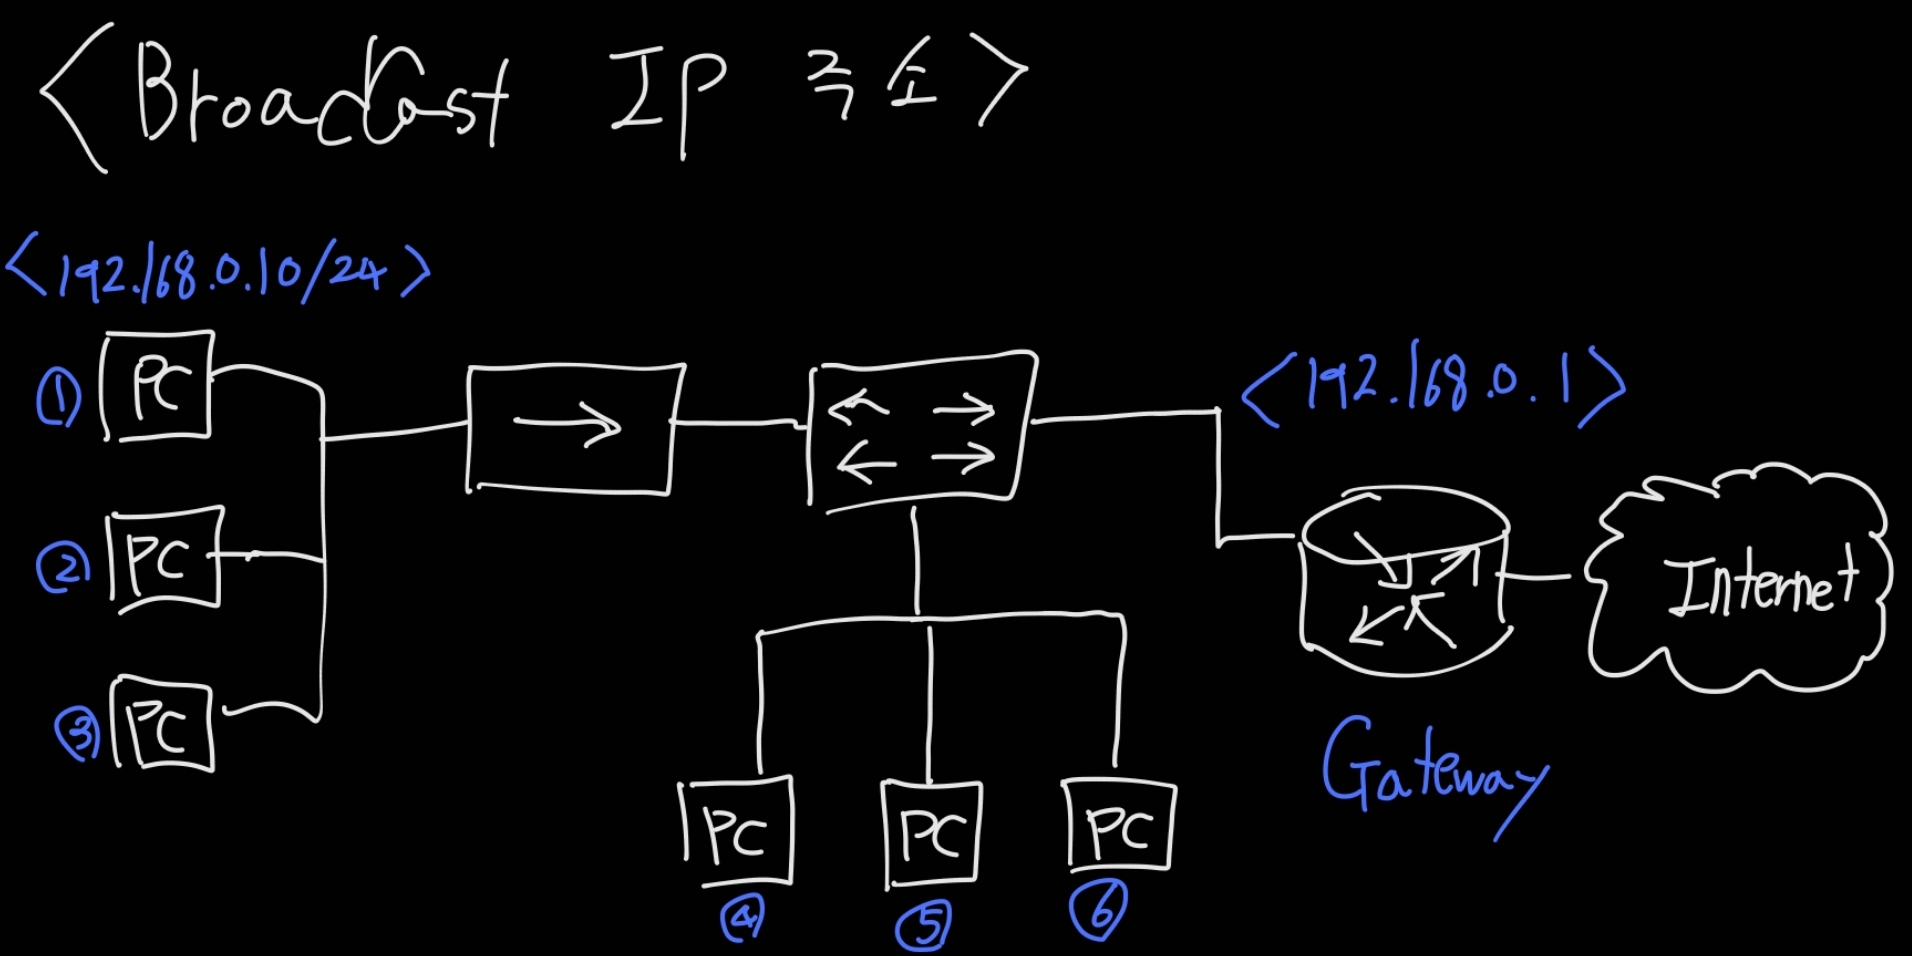 <Broadcast IP 주소>
<192.168.0.10/24>
① PC
② PC
③ PC
<192.168.0.1>
Internet
Gateway
PC PC PC
④ ⑤ ⑥